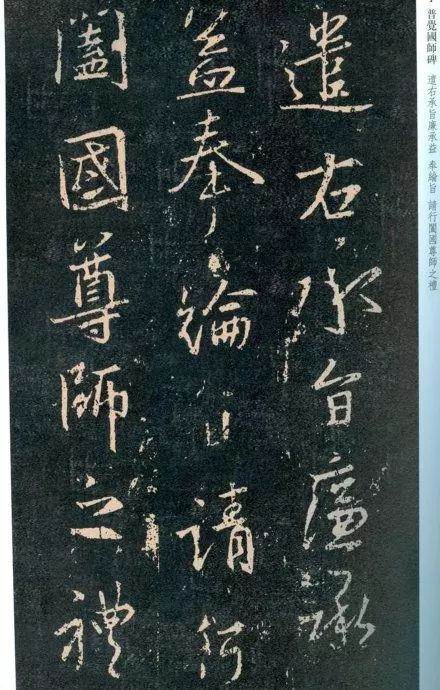 普覺國師碑 遣右承旨廉承益 奉綸旨 請行闔國尊師之禮
遣右承旨廉承
益奉綸旨請行
闔國尊師之禮